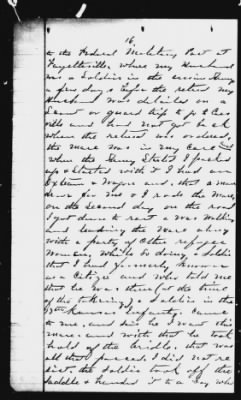 16
to the Federal Military Post at
Fayetteville, where my Husband
was a Soldier in the service
a few days before the retreat my
Husband was detailed on a
Scout or guard
and had not got back
when the retreat was ordered,
the mare was in my care and
when the Army Started I packed
up & Started with it I had an
Ox team & Wagon and, that a mare
I rode the Mare,
on the Second day on the road
I got down to rest & was walking
and leading the Mare along
with a party of Other refugee
Women, while so doing, a Soldier
that I had formerly Known
as a Citizen and who told me
that he was then at the time
of the taking, a Soldier in the
Kansas Infantry. Came
to me, and said he I want this
mare and with that he took
hold of the bridle, that was
all that passed, I did not re
sist, the Soldier took off the
Saddle & handed it to a boy who